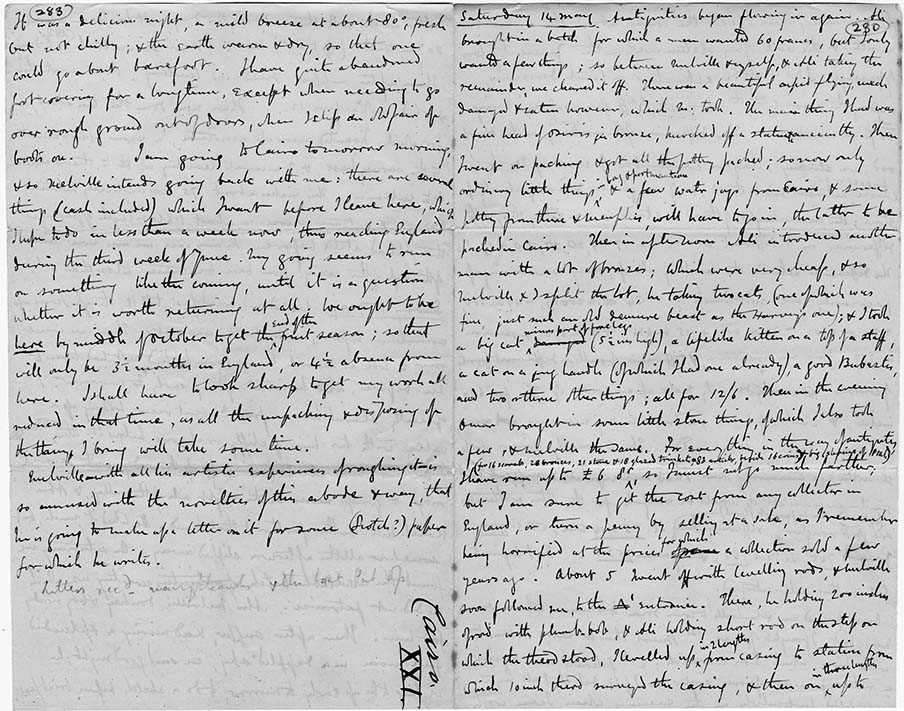 (283)
It was a delicious night, a mild breeze at about 80°, fresh
but not chilly; & the Earth warm & dry, so that one
could go about barefoot. I have quite abandoned
foot covering for a long time, Except when needing to go
over rough ground out of doors, when I slip an old pair of
boots on. I am going to Cairo tomorrow morning,
& so Melville intends going back with me: there are several
things (cash included) which I want before I leave here, which
I hope to do in less than a week now, thus reaching England
during the third week of June. My going seems to run
on something like the coming, until it is a question
whether it is worth returning at all. We ought to be
here by middle of October to get the end of the fruit season; so that
will only be 3½ months in England, or 4½ absence from
here. I shall have to look sharp to get my work all
reduced in that time, as all the unpacking & disposing of
the things I bring will take some time.
Melville with all his artistic experiences of roughing it is
so amused with the novelties of this abode & way, that
he is going to make up a letter on it for some (Scotch?) paper
for which he writes.
Letters recd
Cairo.
XXI
(280)
Saturday 14 May Antiquities began flowing in again. Ali
brought in a batch for which a man wanted 60 francs, but I only
wanted a few things; so between Melville & myself, & Ali taking the
remainder, we cleared it off. There was a beautiful cupid flying, much
damaged & eaten however, which M. took. The main thing I had was
a fine head of Osiris in bronze, knocked off a statue anciently. Then
I went on packing & got all the pottery packed; so now only
ordinary little things & a few water jugs from Cairo & some
pottery from there & Memphis, will have to go in the latter to be
packed in Cairo. Then in afternoon Ali introduced another
man with a lot of bronzes; which were very cheap, & so
Melville & I split the lot, he taking two cats, (one of which was
fine, just such an old demure beast as the Harveys one); & I took
a big cat minus part of fore legs (5½ in high), a lifelike kitten on a top of a staff,
a cat on a jug handle (of which I had one already), a good Bubastis,
and two or three other things; all for 12/6. Then in the evening
Omar brought in some little stone things, of which I also took
a few, & Melville the same. For everything in the way of antiquities
(for 16 scarabs, 28 bronzes, 21 stone & 18 glazed
I have run up to £6 8s, so I must not go much further,
but I am sure to get the cost from any collector in
England, or turn a penny by selling at a sale, as I remember
being horrified at the prices for which a collection sold a few
years ago. About 5 I went off with levelling rods, & Melville
soon followed me, to the Entrance. There, he holding 200 inches
of rod with plumb-bob, & Ali holding short rod on the step on
which the theod stood, I levelled up in 2 lengths from casing to station from
which 10 inch theod surveyed the casing, & then on in three lengths up to